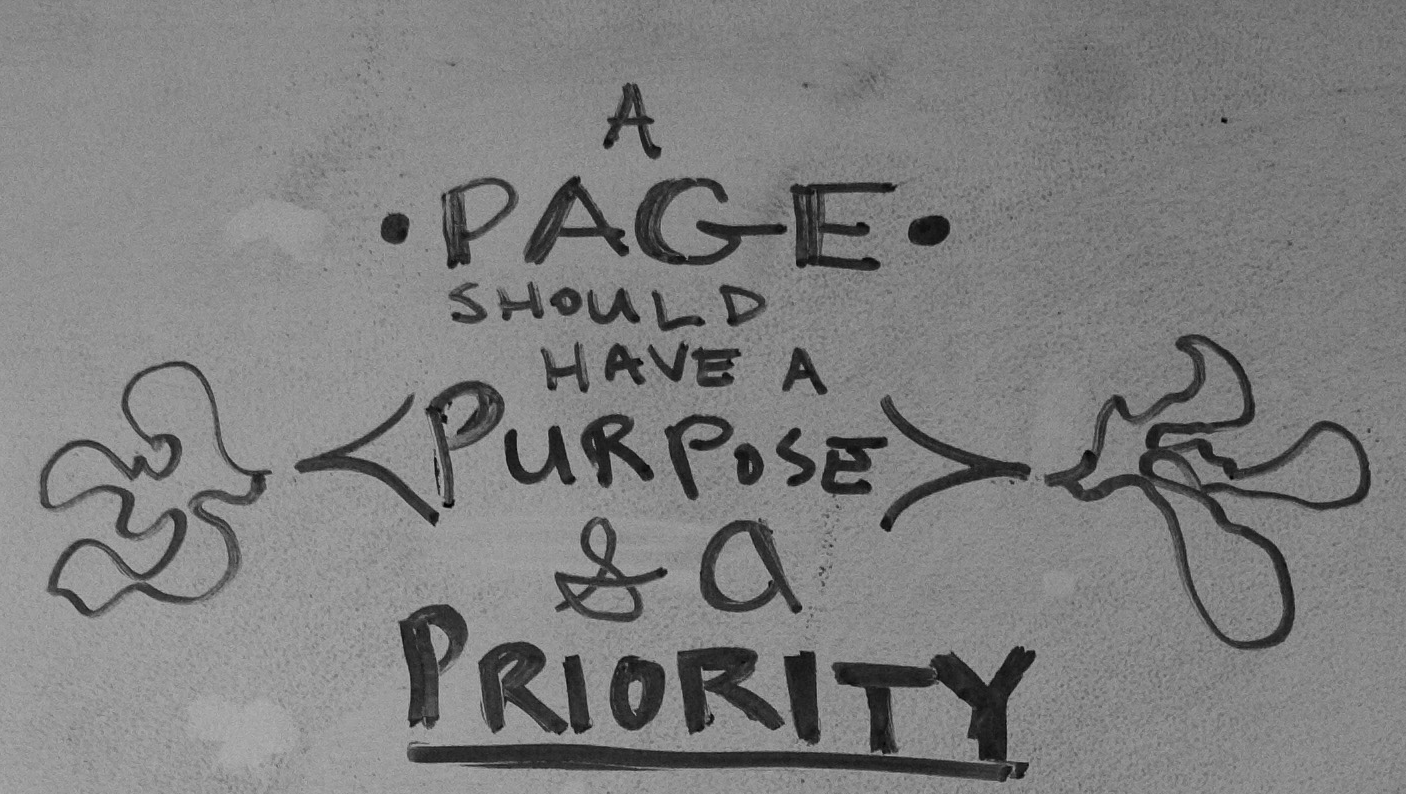 A
• PAGE •
SHOULD
HAVE A
PURPOSE
& a
PRIORITY